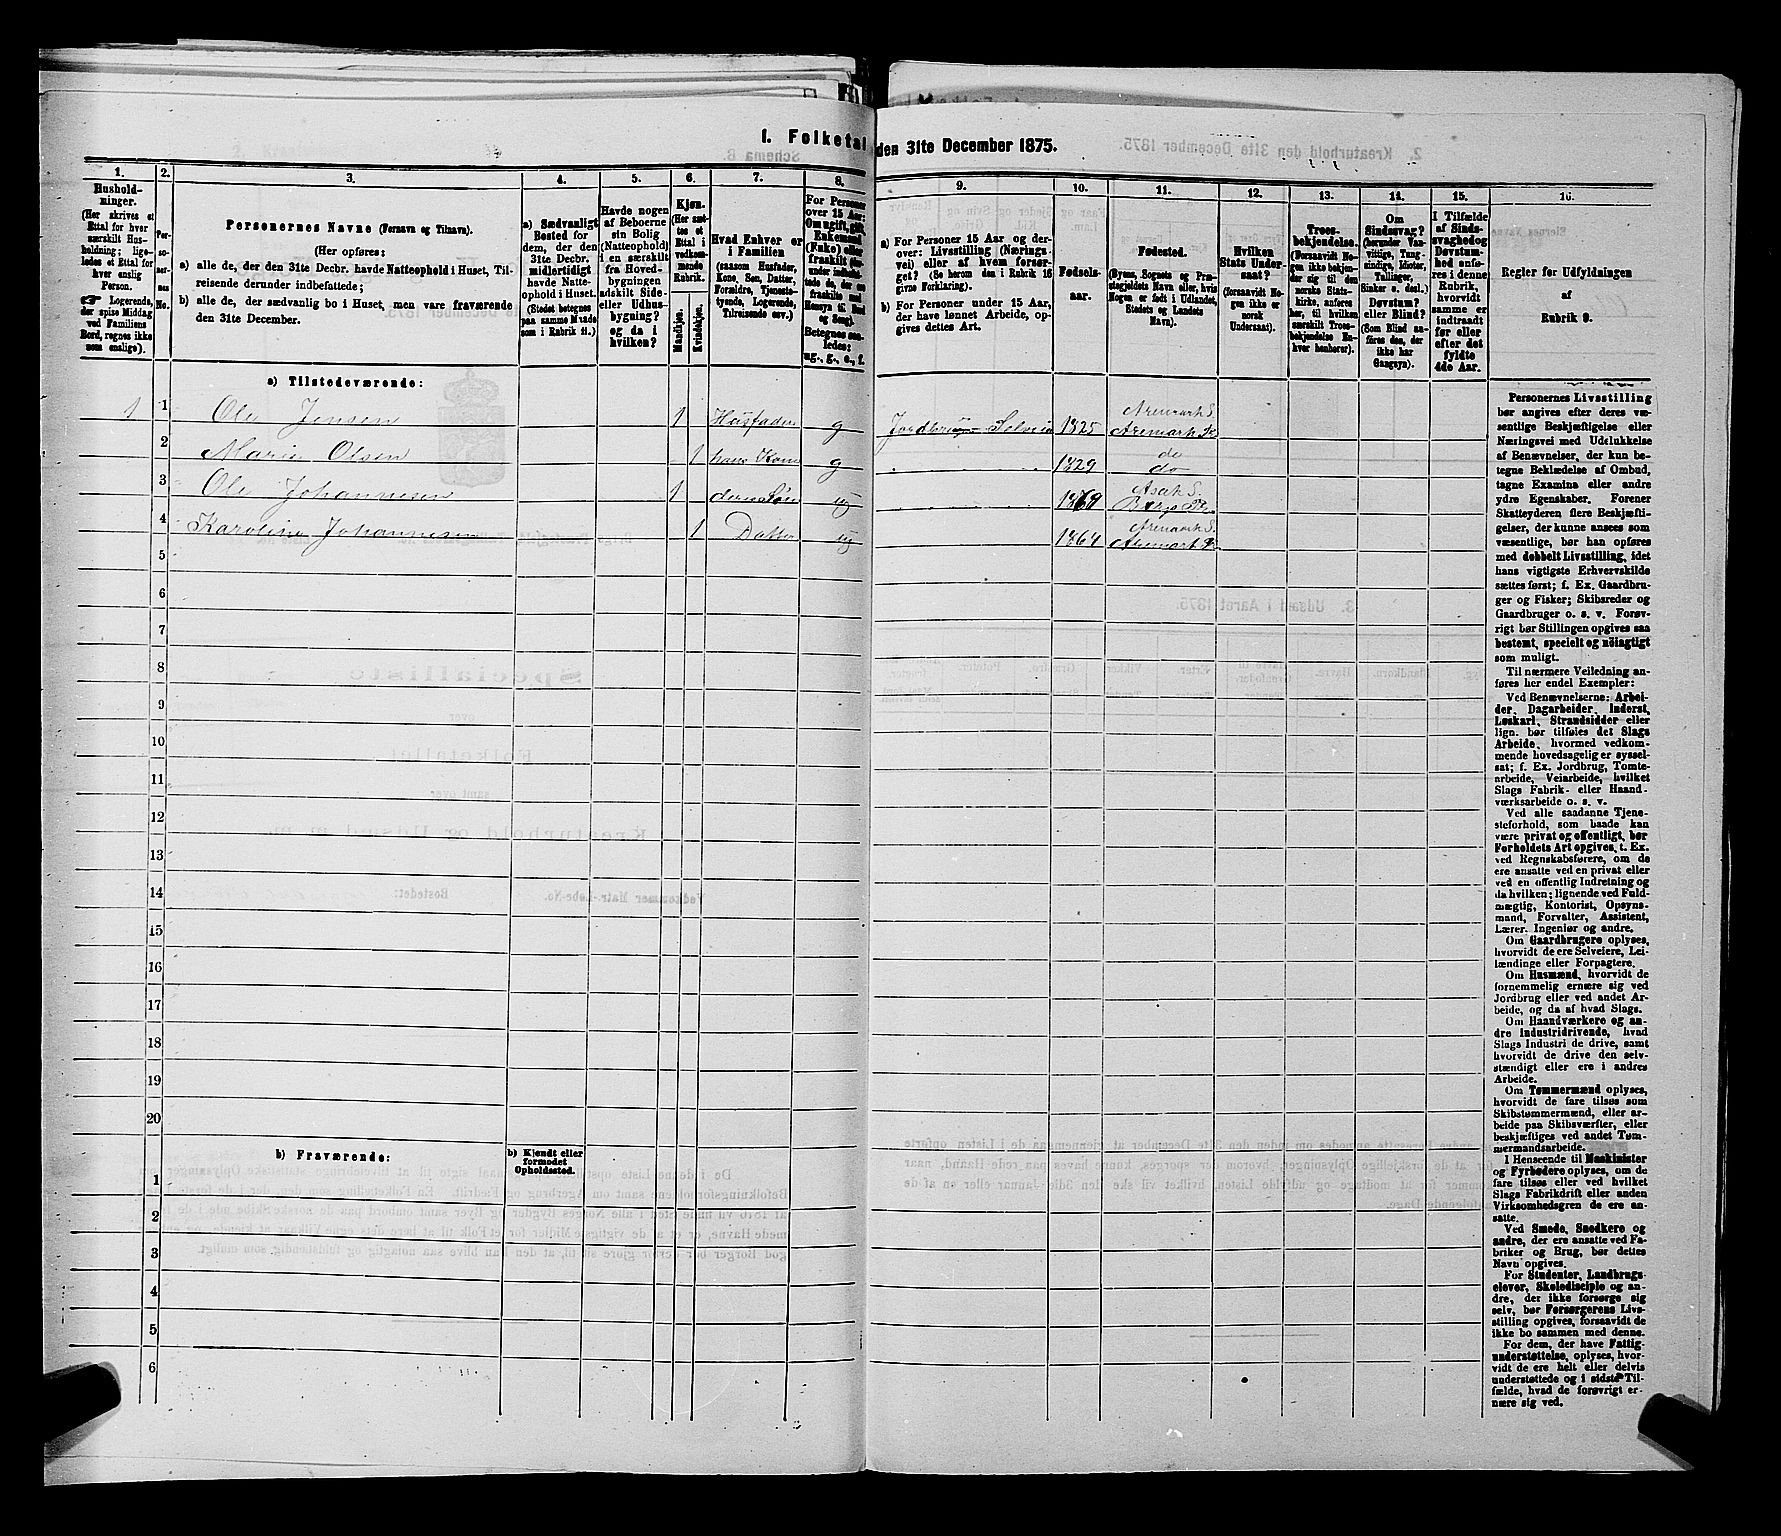 1. Folketal den 31te December 1875.
1.
Hushold-
ninger.
(Her skrives et
Ettal for hver
særskilt Hus-
holdning; lige-
ledes et Ettal for
hver enslig
Person.
☛ Logerende,
der spise Middag
ved Familiens
Bord, regnes ikke
som enslige).
2.
Per-
so-
ner-
nes
No.
3.
Personernes Navne (Fornavn og Tilnavn).
(Her opføres:
a) alle de, der den 31te Decbr. havde Natteophold i Huset, Til-
reisende derunder indbefattede;
b) alle de, der sædvanlig bo i Huset, men vare fraværende
den 31te December.
4.
a) Sædvanligt
Bosted for
dem, der den
31te Decbr.
midlertidigt
havde Natte-
ophold i Huset.
(Stedet betegnes
paa samme Maade
som i Rubrik 11.)
5.
Havde nogen
af Beboerne
sin Bolig
(Natteophold)
i en særskilt
fra Hoved-
bygningen
adskilt Side-
eller Udhus-
bygning?
og da i
hvilken?
6.
Kjøn.
(Her sæt-
tes et
Ettal i
vedkom-
mende
Rubrik.
Mandkjøn.
Kvindekjøn.
7.
Hvad Enhver er
i Familien
(saasom Husfader,
Kone, Søn, Datter,
Forældre, Tjeneste-
tyende, Logerende,
Tilreisende osv.)
8.
For Personer
over 15 Aar:
Om ugift, gift,
Enkemand
(Enke) eller
fraskilt
Betegnes saa-
ledes:
ug., g., e., f.
9.
a) For Personer 15 Aar og der-
over: Livsstilling (Nærings-
vei) eller af hvem forsør-
get? (Se herom den i Rubrik 16
givne Forklaring).
b) For Personer under 15 Aar,
der have lønnet Arbeide, op-
gives dettes Art.
10.
Fødsels-
aar.
11.
Fødested.
(Byens, Sognets og Præ-
stegjeldets Navn eller, hvis
Nogen er født i Udlandet,
Stedets og Landets
Navn).
12.
Hvilken
Stats Under-
saat?
(forsaavidt No-
gen ikke er
norsk
Undersaat).
13.
Troes-
bekjendelse.
(Forsaavidt No-
gen ikke bekjen-
der sig til den
norske Stats-
kirke, anføres
her, til hvilken
særskilt Troes-
bekjendelse En-
hver henhører).
14.
Om
Sindssvag?
(herunder Van-
vittige, Tung-
sindige, Idioter,
Tullinger,
Sinker o. desl.)
Døvstum?
eller Blind?
(Som Blind an-
føres den, der
ikke har
Gangsyn).
15.
I Tilfælde
af Sinds-
svaghed og
Døvstum-
hed anfø-
res i denne
Rubrik,
hvorvidt
samme er
indtraadt
før eller
efter det
fyldte
4de Aar.
16.
Regler for Udfyldningen
af
Rubrik 9.
a) Tilstedeværende:
1 1 Ole Jensen 1 Husfader g Jordbrug Selveier 1825 Aremark S. Aremark Pr.
2 Maria Olsen 1 hans Kone g 1829 do do
3 Ole Johannesen 1 deres Søn ug 1869 Asak S. Berg Pr.
4 Karoline Johannesen 1 Datter ug 1864 Aremark S. Aremark Pr.
5
6
7
8
9
10
11
12
13
14
15
16
17
18
19
20
b) Fraværende:
b) Kjendt eller
formodet
Opholdssted.
1
2
3
4
5
6
Personernes Livsstilling
bør angives efter deres væ-
sentlige Beskjæftigelse eller
Næringsvei med Udelukkelse
af Benævnelser, der kun be-
tegne Beklædelse af Ombud,
tagne Examina eller andre
ydre Egenskaber. Forener
Skatteyderen flere Beskjæfti-
gelser, der kunne ansees som
væsentlige, bør han opføres
med dobbelt Livsstilling, idet
hans vigtigste Erhvervskilde
sættes først; f. Ex. Gaardbru-
ger og Fisker; Skibsreder og
Gaardbruger o. s. v. Forøv-
rigt bør Stillingen opgives saa
bestemt, specielt og nöiagtigt
som muligt.
Til nærmere Veiledning an-
føres her endel Exempler:
Ved Benævnelserne: Arbei-
der, Dagarbeider, Inderst,
Løskarl, Strandsidder eller
lign. bør tilføies det Slags
Arbeide, hvormed vedkom-
mende hovedsagelig er syssel-
sat; f. Ex. Jordbrug, Tomte-
arbeide, Veiarbeide, hvilket
Slags Fabrik- eller Haand-
værksarbeide o. s. v.
Ved alle saadanne Tjene-
steforhold, som baade kan
være privat og offentligt, bør
Forholdets Art opgives, t. Ex.
ved Regnskabsførere, om de
ere ansatte ved en privat eller
ved en offentlig Indretning og
da hvilken; lignende ved Fuld-
mægtig, Kontorist, Opsyns-
mand, Forvalter, Assistent,
Lærer, Ingeniør og andre.
Om Gaardbrugere oplyses,
hvorvidt de ere Selveiere, Lei-
lændinge eller Forpagtere.
Om Husmænd, hvorvidt de
fornemmelig ernære sig ved
Jordbrug eller ved andet Ar-
beide, og da af hvad Slags.
Om Haandværkere og an-
dre Industridrivende, hvad
Slags Industri de drive, samt
hvorvidt de drive den selv-
stændigt eller ere i andres
Arbeide.
Om Tømmermænd oplyses,
hvorvidt de fare tilsøs som
Skibstømmermænd, eller ar-
beide paa Skibsværfter, eller
beskjæftiges ved andet Tøm-
mermandsarbeide.
I Henseende til Maskinister
og Fyrbødere oplyses, om de
fare tilsøs eller ved hvilket
Slags Fabrikdrift eller anden
Virksomhedsgren de ere an-
satte.
Ved Smede, Snedkere og
andre, der ere ansatte ved Fa-
briker og Brug, bør dettes
Navn opgives.
For Studenter, Landbrugs-
elever, Skoledisciple og an-
dre, der ikke forsørge sig
selv, bør Forsørgerens Livs-
stilling opgives, forsaavidt de
ikke bo sammen med denne.
For dem, der have Fattig-
understøttelse, oplyses, hvor-
vidt de ere helt eller delvis
understøttede og i sidste Til-
fælde, hvad de forøvrigt er-
nære sig ved.